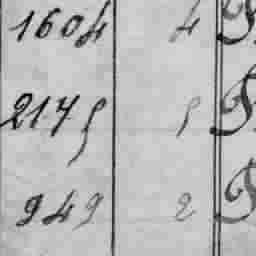 1604 4
2175 5
949 2